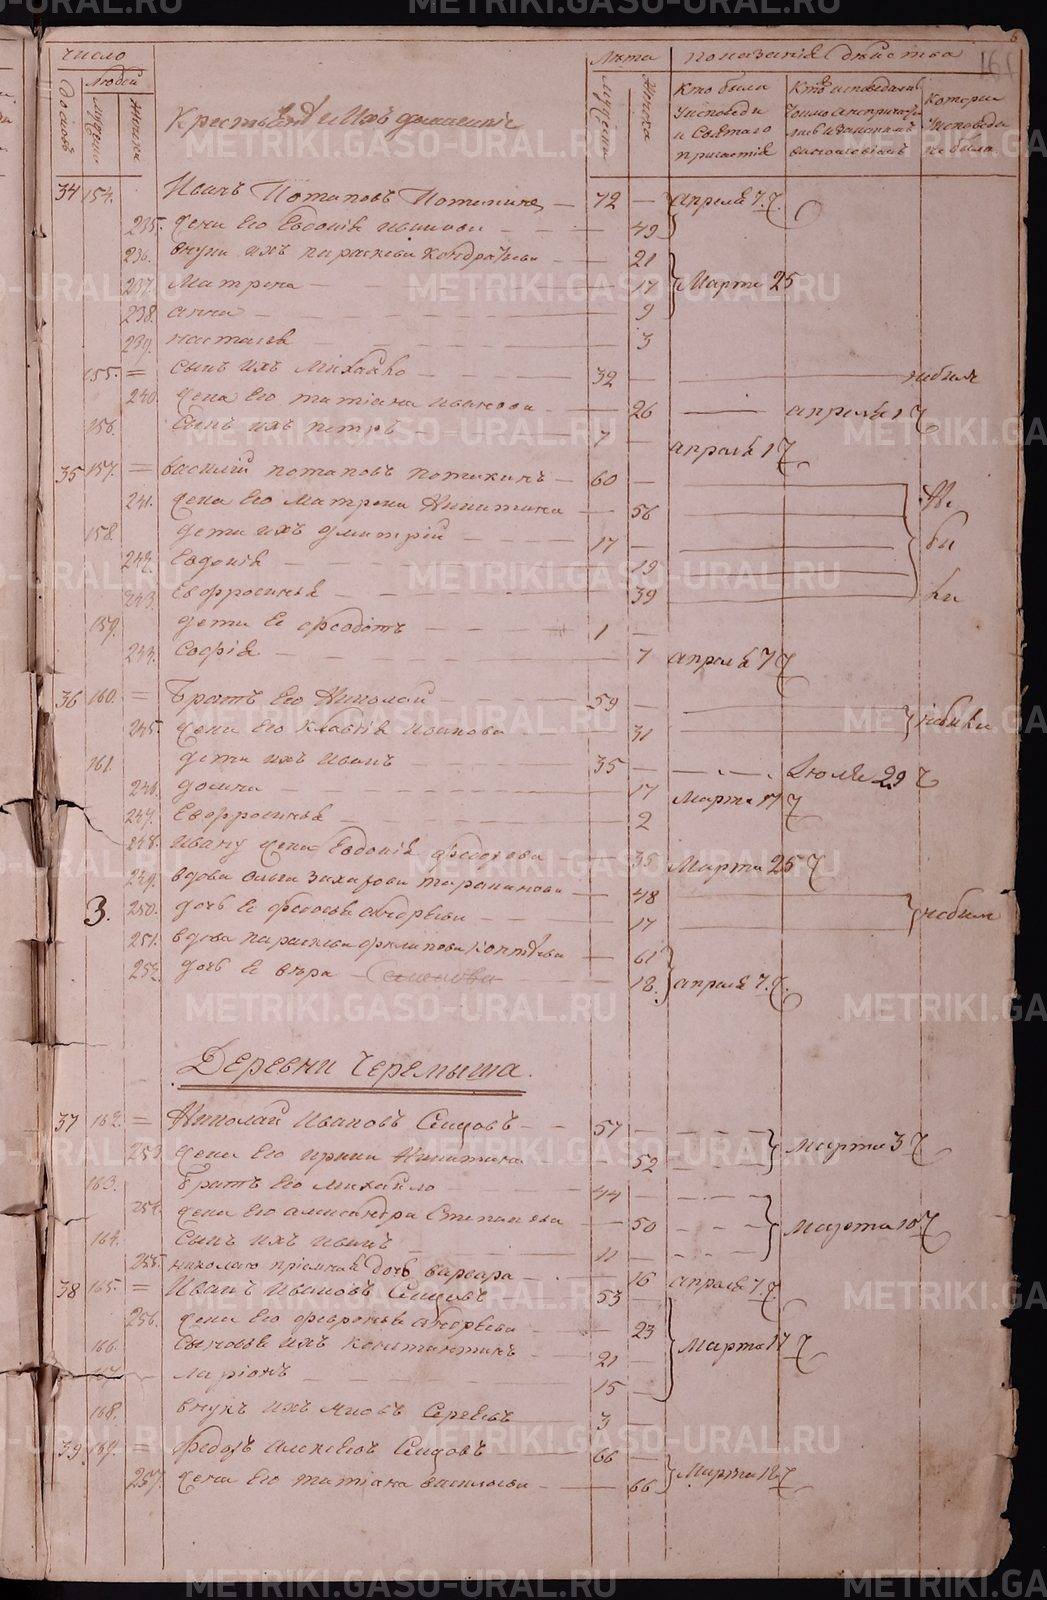 число
Домовъ
Людей
Мужеска
Женска
Крестьяне и Ихъ домашние
Лѣта
Мужеска
Женска
показанія дѣйства
Кто были У исповеди и Святаго причастія
Которые Уисповеди небыли
161
34 154. Иванъ Потаповъ Потапинъ 72 — Апреля 7.
235. Жена Его Евдокія Иванова 49
236. внуки ихъ параскева Кондратьева 21
237. Матрена 17 Марта 25
238. анна 9
239. настасья 3
155. = сынъ ихъ Михайло 32 небылъ
240. Жена Его татіана Иванова 26 апреля 17
156. Сынъ ихъ петръ 7 апреля 17
35 157. = василий потаповъ потапинъ 60
241. Жена Его Матрена Никитина 56 Не
158. дети ихъ дмитрій 17 бы
242. Евдокія 19
243. Евфросинья 39 ли
159. дети Ее 1
Софія 7 апреля 7
36 160. = Братъ Его Николай 59 небыли
245. Жена Его Клавдія Иванова 31
161. дети ихъ Иванъ 35 Июля 29
246. домна 17 Марта 17
247. Евфросинья 2
248. Ивану жена Евдокія федорова 35 Марта 25
249. вдова Ольга Захарова 48
3. 250. дочь Ее федосья Андреева 17 небыли
251. вдова параскева филипова 61
252. дочь Ее вера 18. апреля 7.
Деревни Черемыша.
37 162. = Николай Ивановъ Сецовъ 57 Марта 3
253. Жена Его ирина Никитина 52
163. Братъ Его Михайло 44
254. Жена Его александра Степанова 50 Марта 10
164. Сынъ ихъ Иванъ 11
255. николаю пріемная дочь варвара 16 апреля 7.
38 165. = Иванъ Ивановъ Сецовъ 53
256. Жена Его февронья андреева 23
166. Сыновья ихъ константинъ 21 Марта 17
167. ларіонъ 15
168. внукъ ихъ яковъ Сергеевъ 3
39 169. = Федоръ алексеевъ Сецовъ 66
257. Жена Его татіана васильева 66 Марта 18
METRIKI.GASO-URAL.RU